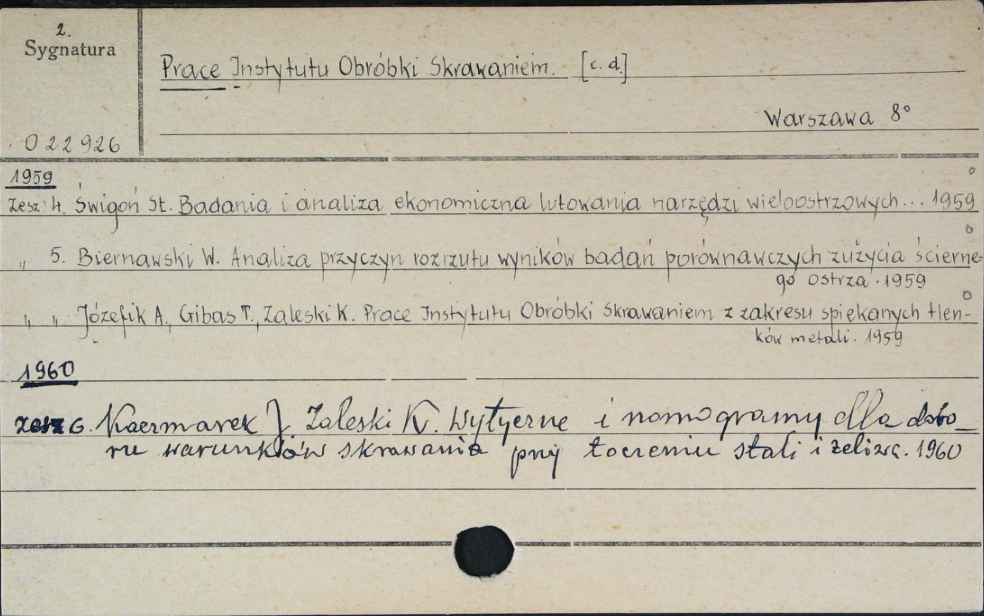 2.
Sygnatura
Prace Instytutu Obróbki Skrawaniem. [c. d.]
Warszawa 8°
022926
1959
Zesz. 4. Świgoń St. Badania i analiza ekonomiczna lutowania narzędzi wieloostrzowych... 1959
„ 5. Biernawski W. Analiza przyczyn rozrzutu wyników badań porównawczych zużycia ścierne-
go ostrza. 1959
„ „ Józefik A., Gibas T., Zaleski K. Prace Instytutu Obróbki Skrawaniem z zakresu spiekanych tlen-
ków metali. 1959
1960
zesz 6. Kaczmarek J. Zaleski K. Wytyczne i nomogramy dla dobo-
ru warunków skrawania przy toczeniu stali i żeliwa. 1960